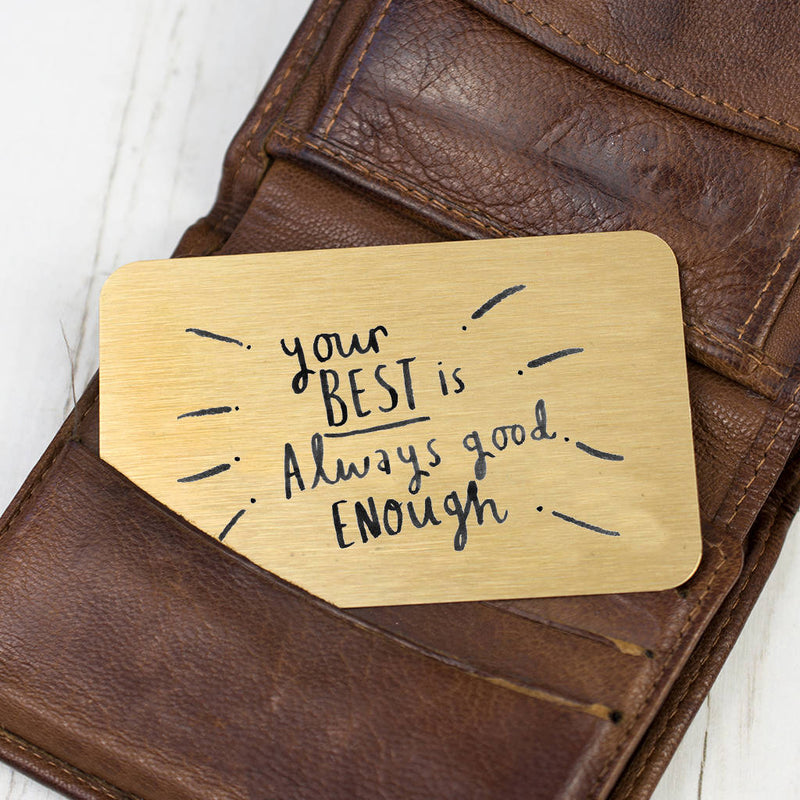 your
BEST is
Always good.
ENOUGH